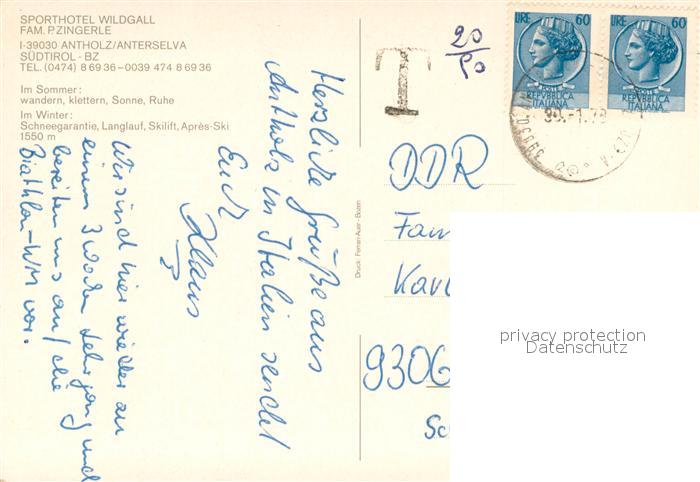 SPORTHOTEL WILDGALL
FAM. P. ZINGERLE
I-39030 ANTHOLZ/ANTERSELVA
SÜDTIROL - BZ
TEL. (0474) 8 69 36 - 0039 474 8 69 36
Im Sommer:
wandern, klettern, Sonne, Ruhe
Im Winter:
Schneegarantie, Langlauf, Skilift, Après-Ski
1550 m
Herzliche Grüße aus
Antholz in Italien sendet
Euch
Klaus
Wir sind hier wieder zu
einem 3 wochen Lehrgang und
bereiten uns auf die
Biathlon-WM vor.
Druck: Ferrari-Auer - Bozen
T
20/90
LIRE 60
POSTE
REPVBBLICA
ITALIANA
LIRE 60
POSTE
REPVBBLICA
ITALIANA
DDR
Fam
Karl
9306
Sc
privacy protection
Datenschutz